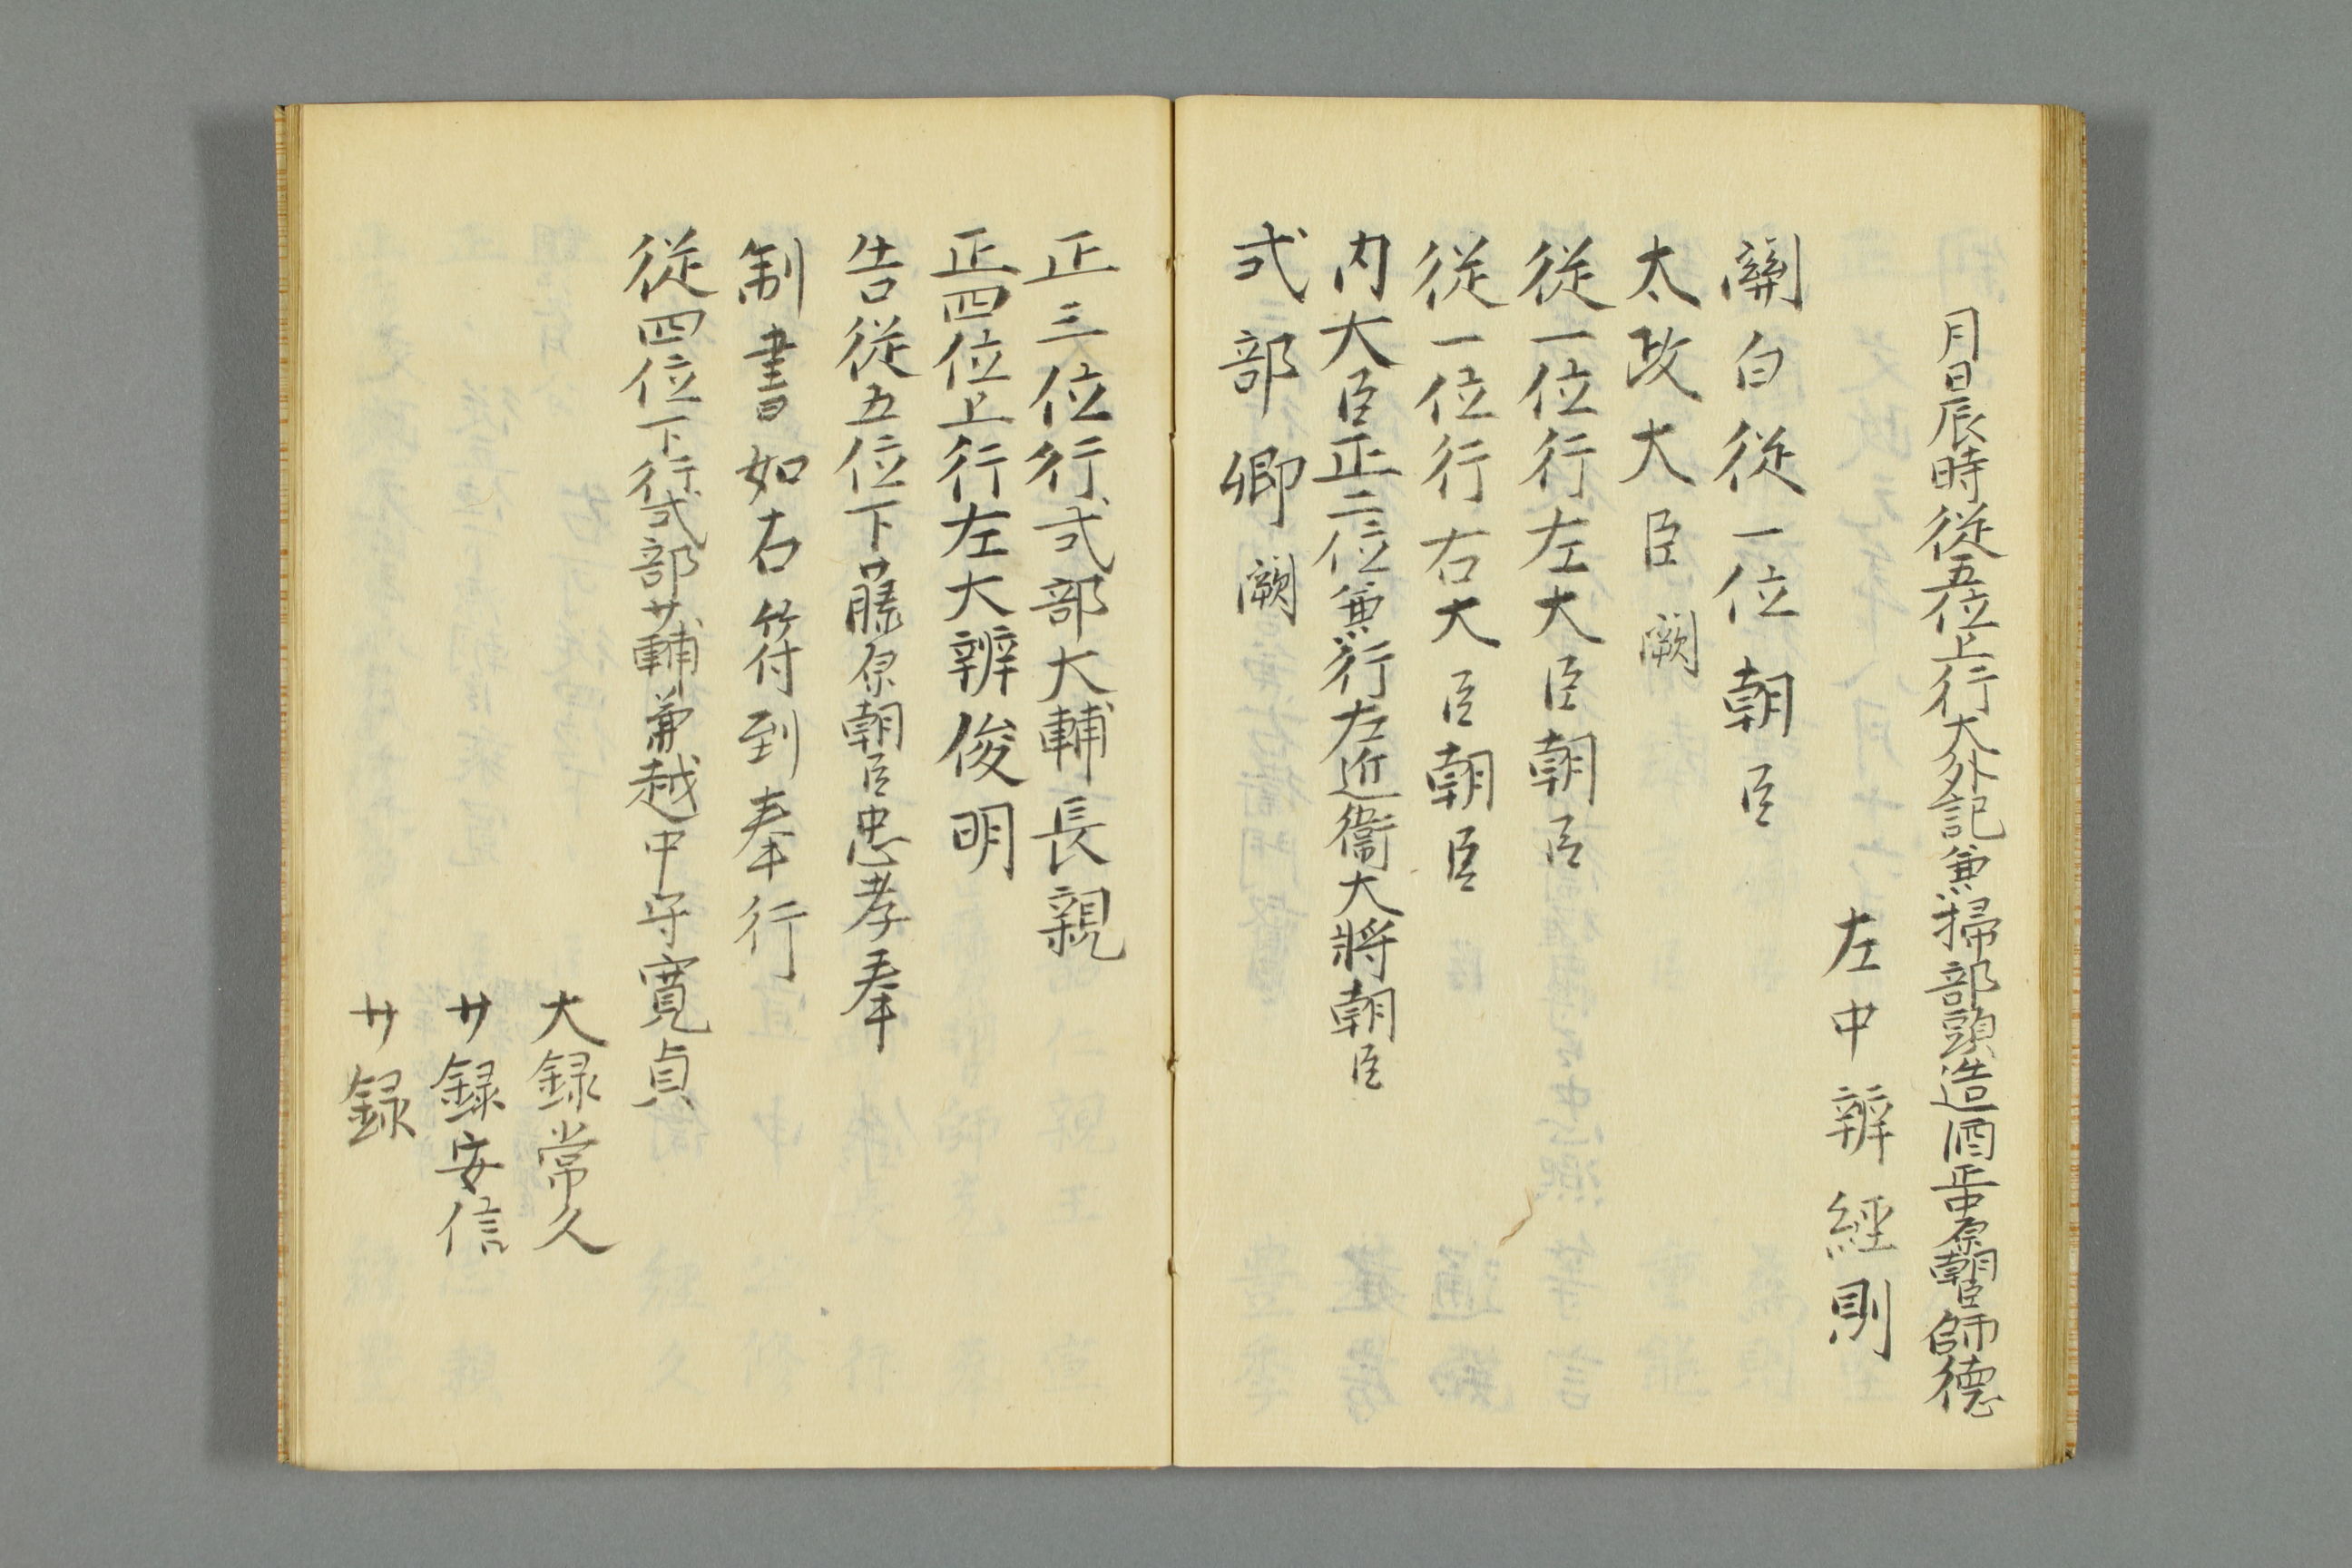 月日辰時從五位上行大外記兼掃部頭造酒正中原朝臣師德
左中辨經則
關白從一位朝臣
太政大臣闕
從一位行左大臣朝臣
從一位行右大臣朝臣
內大臣正二位兼行左近衞大將朝臣
式部卿闕
正三位行式部大輔長親
正四位上行左大辨俊明
告從五位下藤原朝臣忠孝奉
制書如右符到奉行
從四位下行式部少輔兼越中守寬貞
大録常久
少録安信
少録